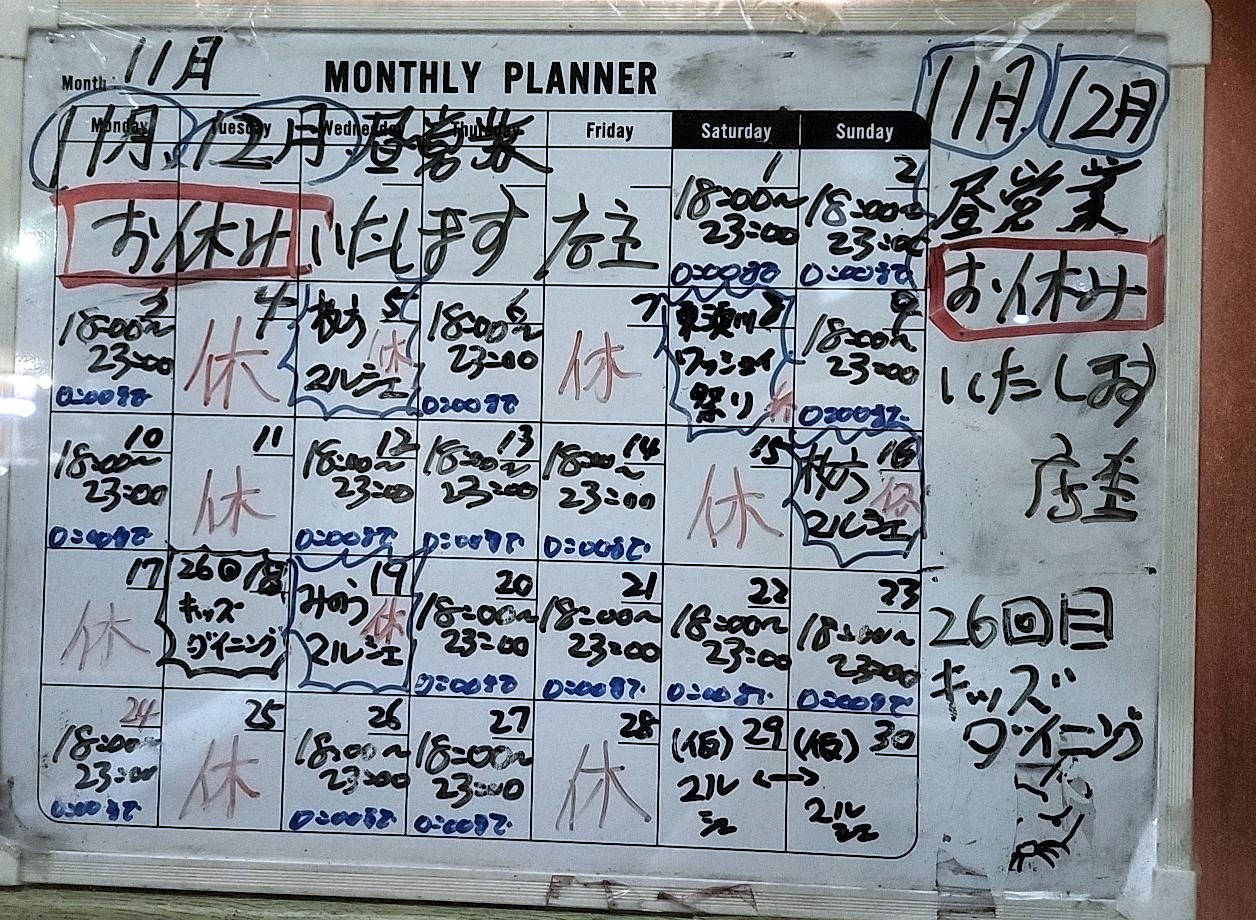 Month 11月
MONTHLY PLANNER
Monday Tuesday Wednesday Thursday Friday Saturday Sunday
11月、12月、昼営業
お休みいたします 店主
1
18:00〜
23:00
0:00まで
2
18:00〜
23:00
0:00まで
3
18:00〜
23:00
0:00まで
4
休
5
枚方
休
マルシェ
6
18:00〜
23:00
0:00まで
7
休
8
ワッショイ
祭り
休
9
18:00〜
23:00
0:00まで
10
18:00〜
23:00
0:00まで
11
休
12
18:00〜
23:00
0:00まで
13
18:00〜
23:00
0:00まで
14
18:00〜
23:00
0:00まで
15
休
16
枚方
休
マルシェ
17
休
18
26回
キッズ
ダイニング
19
みのう
休
マルシェ
20
18:00〜
23:00
0:00まで
21
18:00〜
23:00
0:00まで
22
18:00〜
23:00
0:00まで
23
18:00〜
23:00
0:00まで
24
18:00〜
23:00
0:00まで
25
休
26
18:00〜
23:00
0:00まで
27
18:00〜
23:00
0:00まで
28
休
(仮) 29
マル
シェ
(仮) 30
マル
シェ
11月、12月
昼営業
お休み
いたします
店主
26回目
キッズ
ダイニング